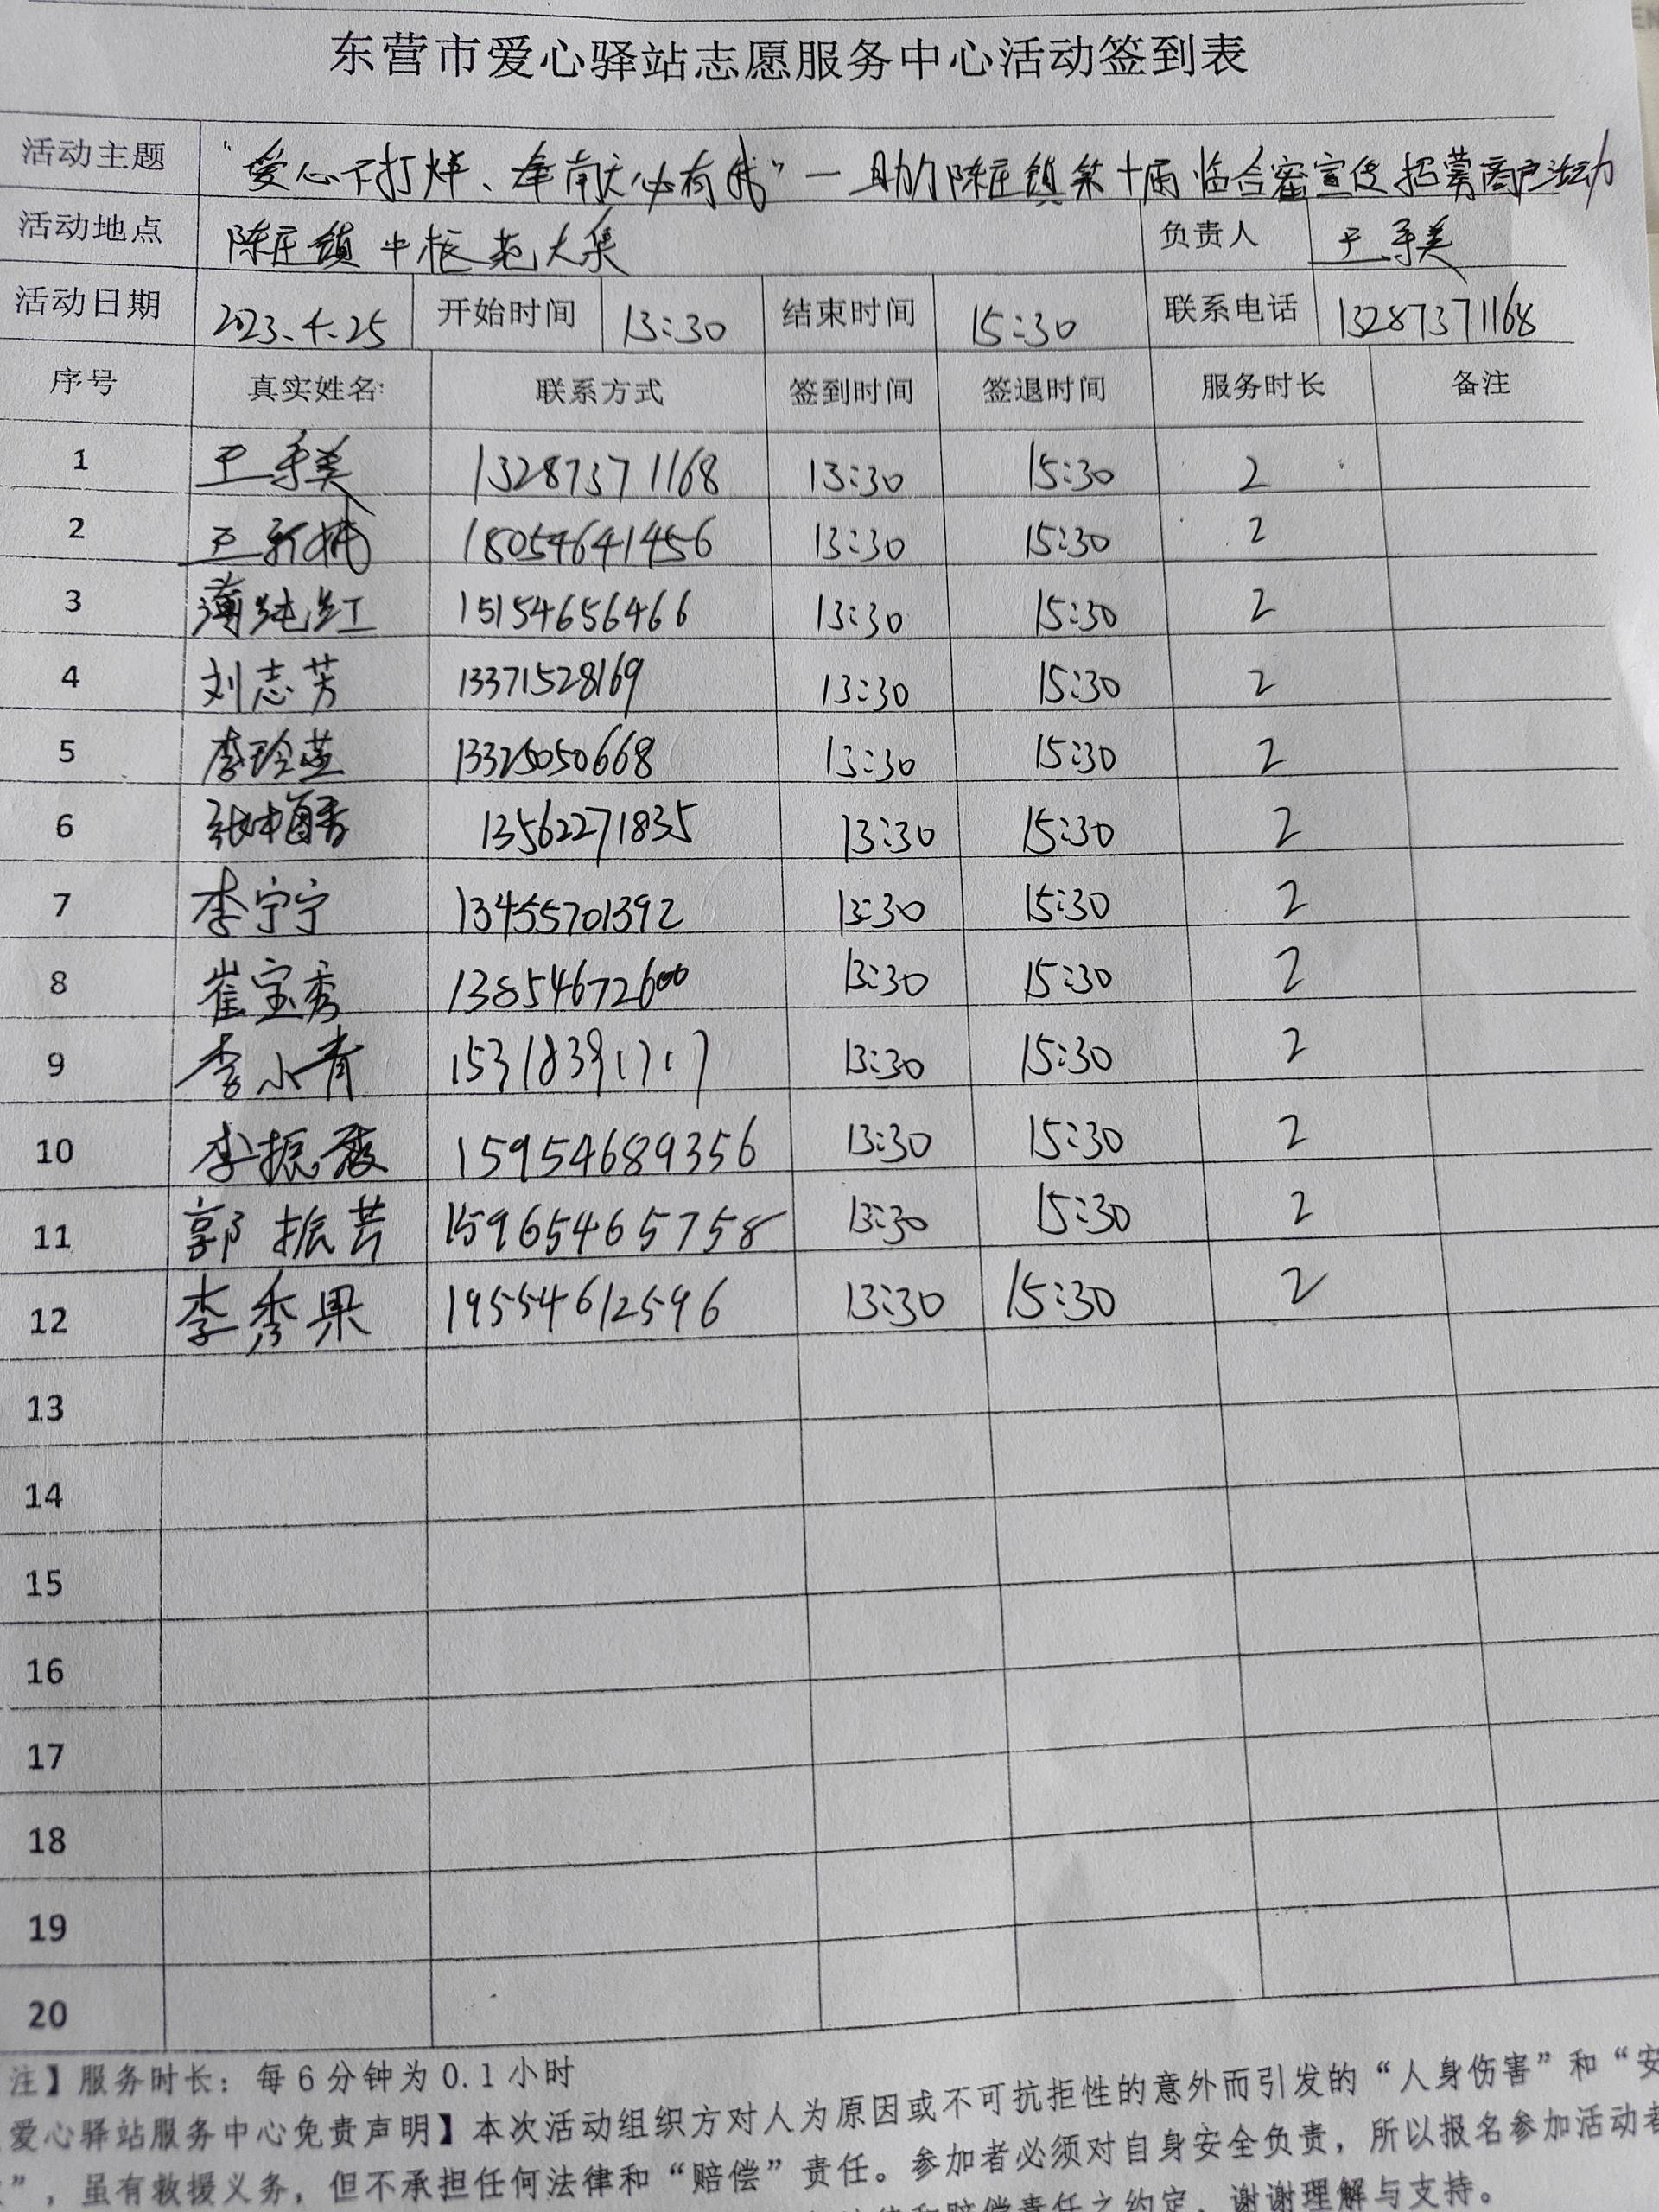 东营市爱心驿站志愿服务中心活动签到表
活动主题 “爱心不打烊、 必有我”一助力陈庄镇第十届 宣传招募商户活动
活动地点 陈庄镇中 大集 负责人 王秀美
活动日期 2023.4.25 开始时间 13:30 结束时间 15:30 联系电话 13287371168
序号 真实姓名: 联系方式 签到时间 签退时间 服务时长 备注
1 王秀美 13287371168 13:30 15:30 2
2 王新 18054641456 13:30 15:30 2
3 薄纯红 15154656466 13:30 15:30 2
4 刘志芳 13371528169 13:30 15:30 2
5 李玲燕 13325050668 13:30 15:30 2
6 张 香 13562271835 13:30 15:30 2
7 李宁宁 13455701392 13:30 15:30 2
8 崔宝秀 13854672600 13:30 15:30 2
9 李小青 15318391717 13:30 15:30 2
10 李振 15954689356 13:30 15:30 2
11 郭振芸 15965465758 13:30 15:30 2
12 李秀果 19554612596 13:30 15:30 2
13
14
15
16
17
18
19
20
注】服务时长：每6分钟为0.1小时
爱心驿站服务中心免责声明】本次活动组织方对人为原因或不可抗拒性的意外而引发的“人身伤害”和“安
”，虽有救援义务，但不承担任何法律和“赔偿”责任。参加者必须对自身安全负责，所以报名参加活动者
和赔偿责任之约定，谢谢理解与支持。